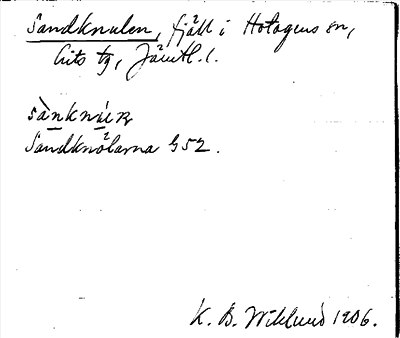 Sandknulen, fjäll i Hotagens sn,
Lits tg, Jämtl. l.
Sandknölarna G 52.
K. B. Wiklund 1906.